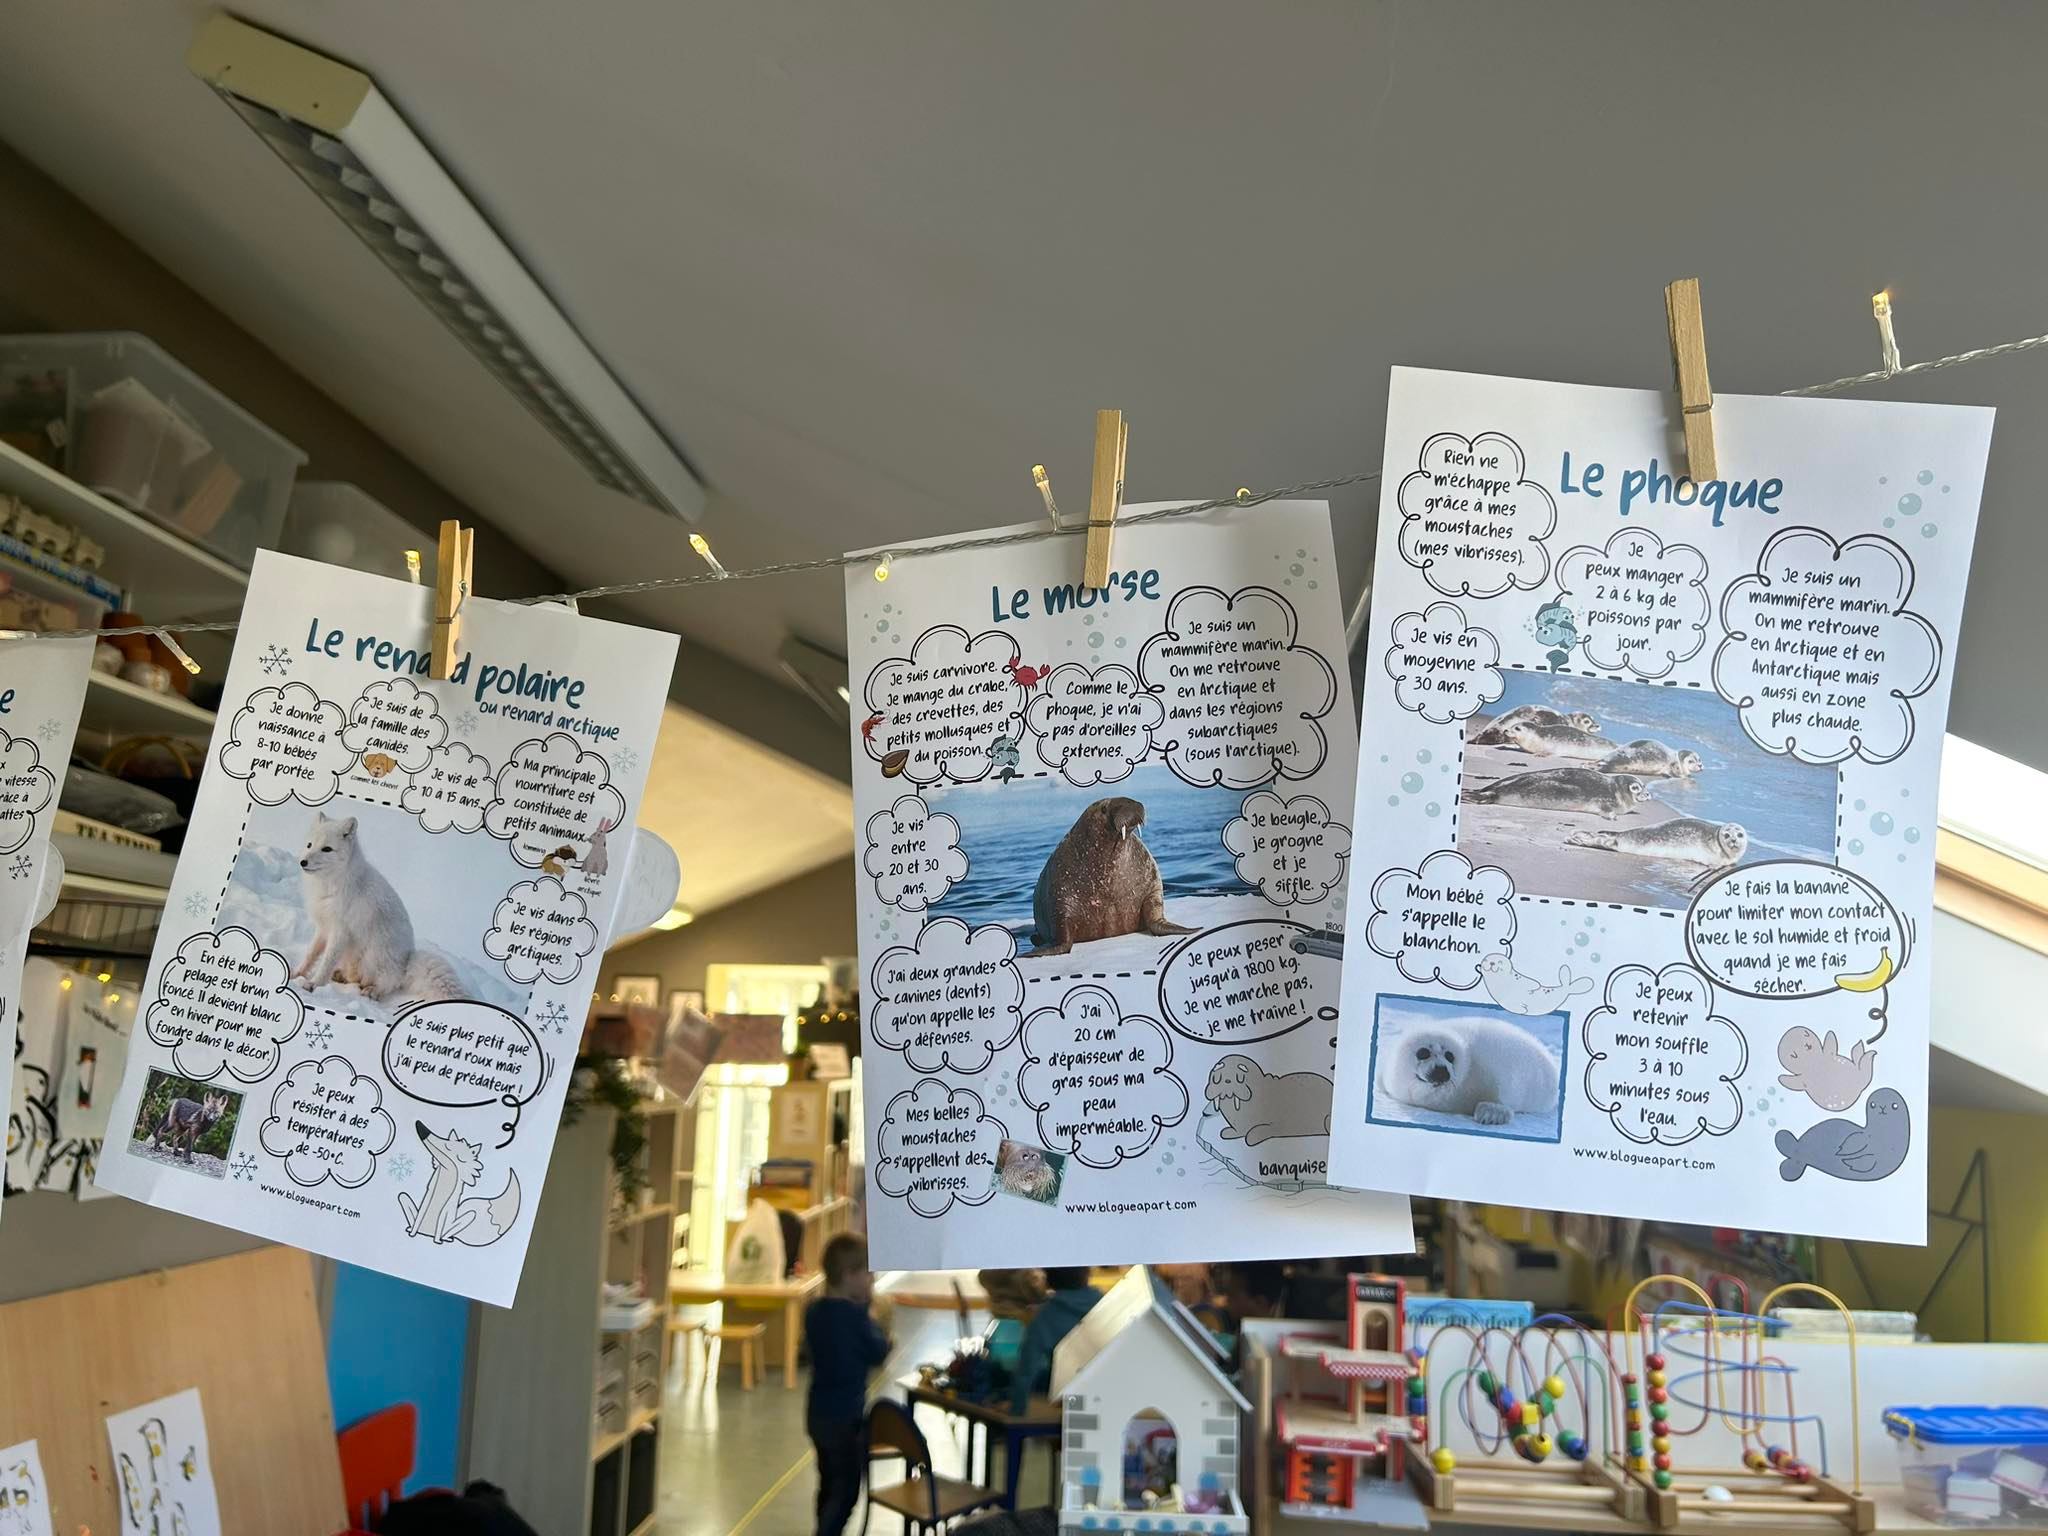 e
x
e vitesse
râce à
attes
TEA TIME
Le renard polaire
ou renard arctique
Je donne
naissance à
8-10 bébés
par portée.
Je suis de
la famille des
canidés.
comme les chiens
Je vis de
10 à 15 ans.
Ma principale
nourriture est
constituée de
petits animaux.
lemming
lièvre
arctique
Je vis dans
les régions
arctiques.
En été mon
pelage est brun
foncé. Il devient blanc
en hiver pour me
fondre dans le décor.
Je suis plus petit que
le renard roux mais
j'ai peu de prédateur !
Je peux
résister à des
températures
de -50°C.
www.blogueapart.com
Le morse
Je suis carnivore.
Je mange du crabe,
des crevettes, des
petits mollusques et
du poisson.
Comme le
phoque, je n'ai
pas d'oreilles
externes.
Je suis un
mammifère marin.
On me retrouve
en Arctique et
dans les régions
subarctiques
(sous l'arctique).
Je vis
entre
20 et 30
ans.
Je beugle,
je grogne
et je
siffle.
J'ai deux grandes
canines (dents)
qu'on appelle les
défenses.
J'ai
20 cm
d'épaisseur de
gras sous ma
peau
imperméable.
Je peux peser
jusqu'à 1800 kg.
Je ne marche pas,
je me traîne !
1800
Mes belles
moustaches
s'appellent des
vibrisses.
banquise
www.blogueapart.com
Le phoque
Rien ne
m'échappe
grâce à mes
moustaches
(mes vibrisses).
Je
peux manger
2 à 6 kg de
poissons par
jour.
Je suis un
mammifère marin.
On me retrouve
en Arctique et en
Antarctique mais
aussi en zone
plus chaude.
Je vis en
moyenne
30 ans.
Mon bébé
s'appelle le
blanchon.
Je fais la banane
pour limiter mon contact
avec le sol humide et froid
quand je me fais
sécher.
Je peux
retenir
mon souffle
3 à 10
minutes sous
l'eau.
www.blogueapart.com